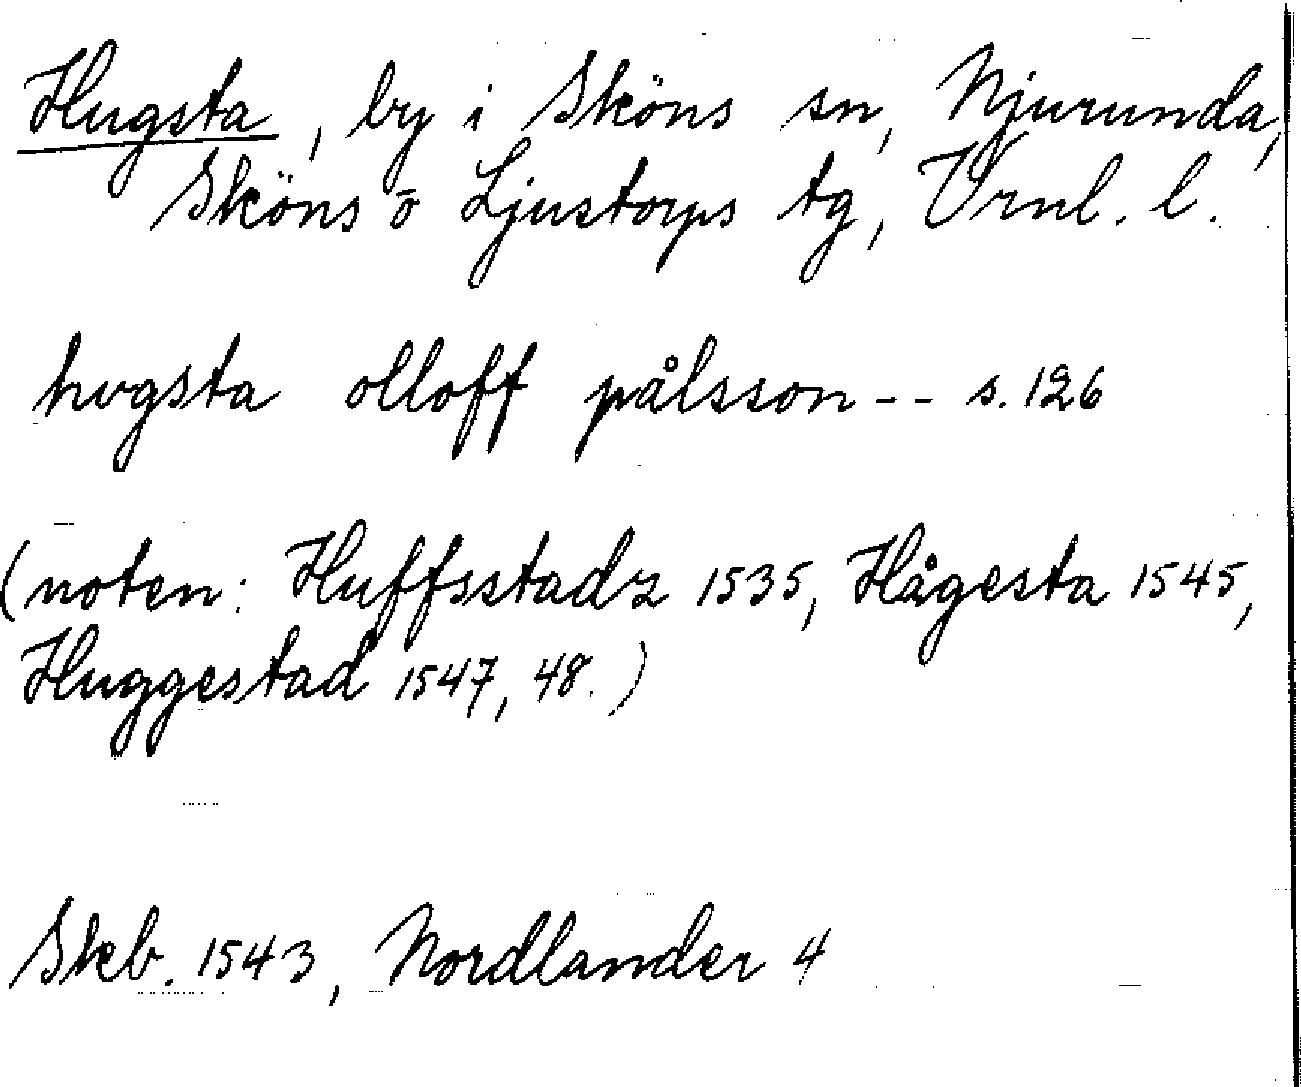 Hugsta, by i Sköns sn, Njurunda,
Sköns o Ljustorps tg, Vrnl. l.
hvgsta olloff pålsson -- s. 126
(noten: Huffsstadz 1535, Hågesta 1545,
Huggestad 1547, 48.)
Skeb. 1543, Nordlander 4